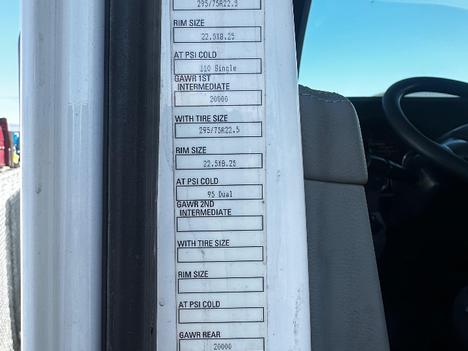 295/75R22.5
RIM SIZE
22.5X8.25
AT PSI COLD
110 Single
GAWR 1ST
INTERMEDIATE
20000
WITH TIRE SIZE
295/75R22.5
RIM SIZE
22.5X8.25
AT PSI COLD
95 Dual
GAWR 2ND
INTERMEDIATE
WITH TIRE SIZE
RIM SIZE
AT PSI COLD
GAWR REAR
20000